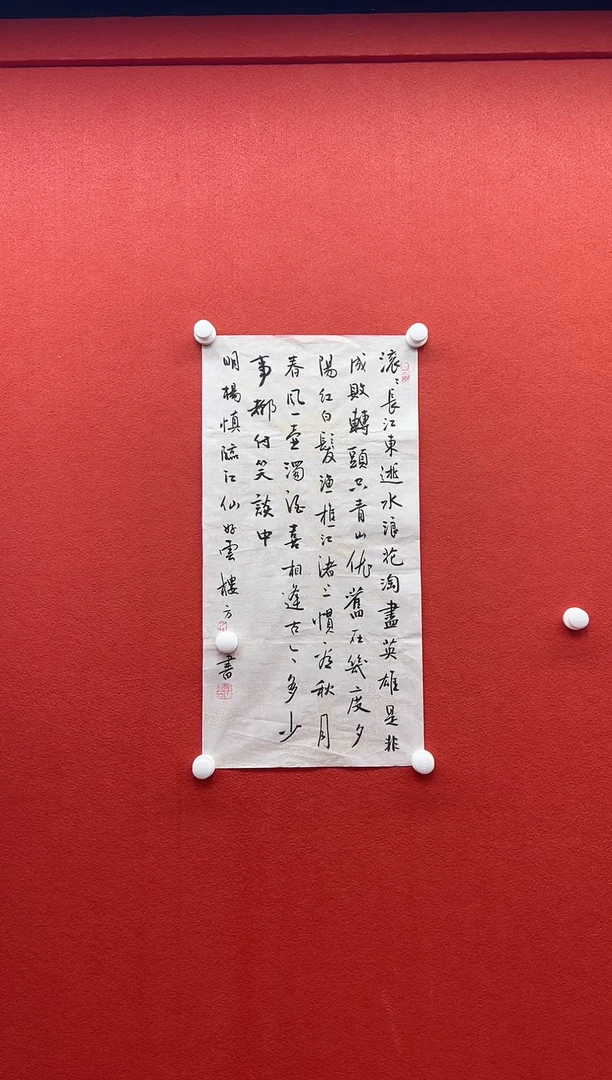 滚〻長江東逝水浪花淘盡英雄是非
成敗轉頭空青山依舊在幾度夕
陽红白髮漁樵江渚上慣看秋月
春风一壺濁酒喜相逢古今多少
事都付笑談中
明楊慎臨江仙好雲樓方書